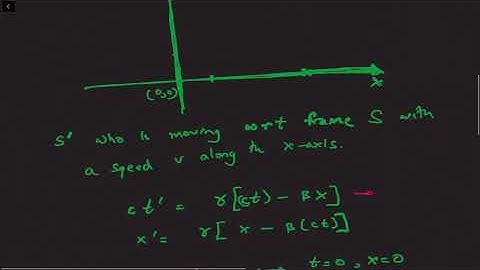 (0,0)
x
S' who is moving wrt frame S with
a speed v along the x-axis.
ct' = γ[(ct) - βx]
x' = γ[x - β(ct)]
t=0, x=0